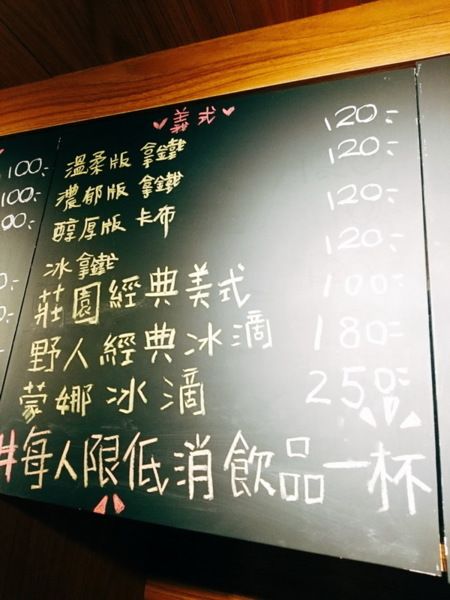 義式
溫柔版 拿鐵 120.-
濃郁版 拿鐵 120.-
醇厚版 卡布 120.-
冰拿鐵 120.-
莊園經典美式 100.-
野人經典冰滴 180.-
蒙娜冰滴 250.-
#每人限低消飲品一杯
100.-
100.-